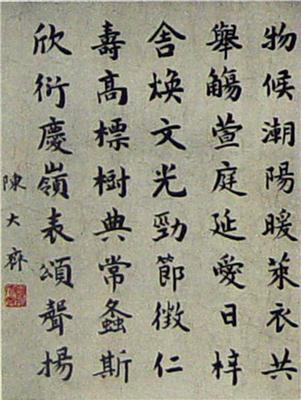 物候潮陽暖萊衣共
舉觴萱庭延愛日梓
舍煥文光勁節徵仁
壽高標樹典常螽斯
欣衍慶嶺表頌聲揚
陳大齊